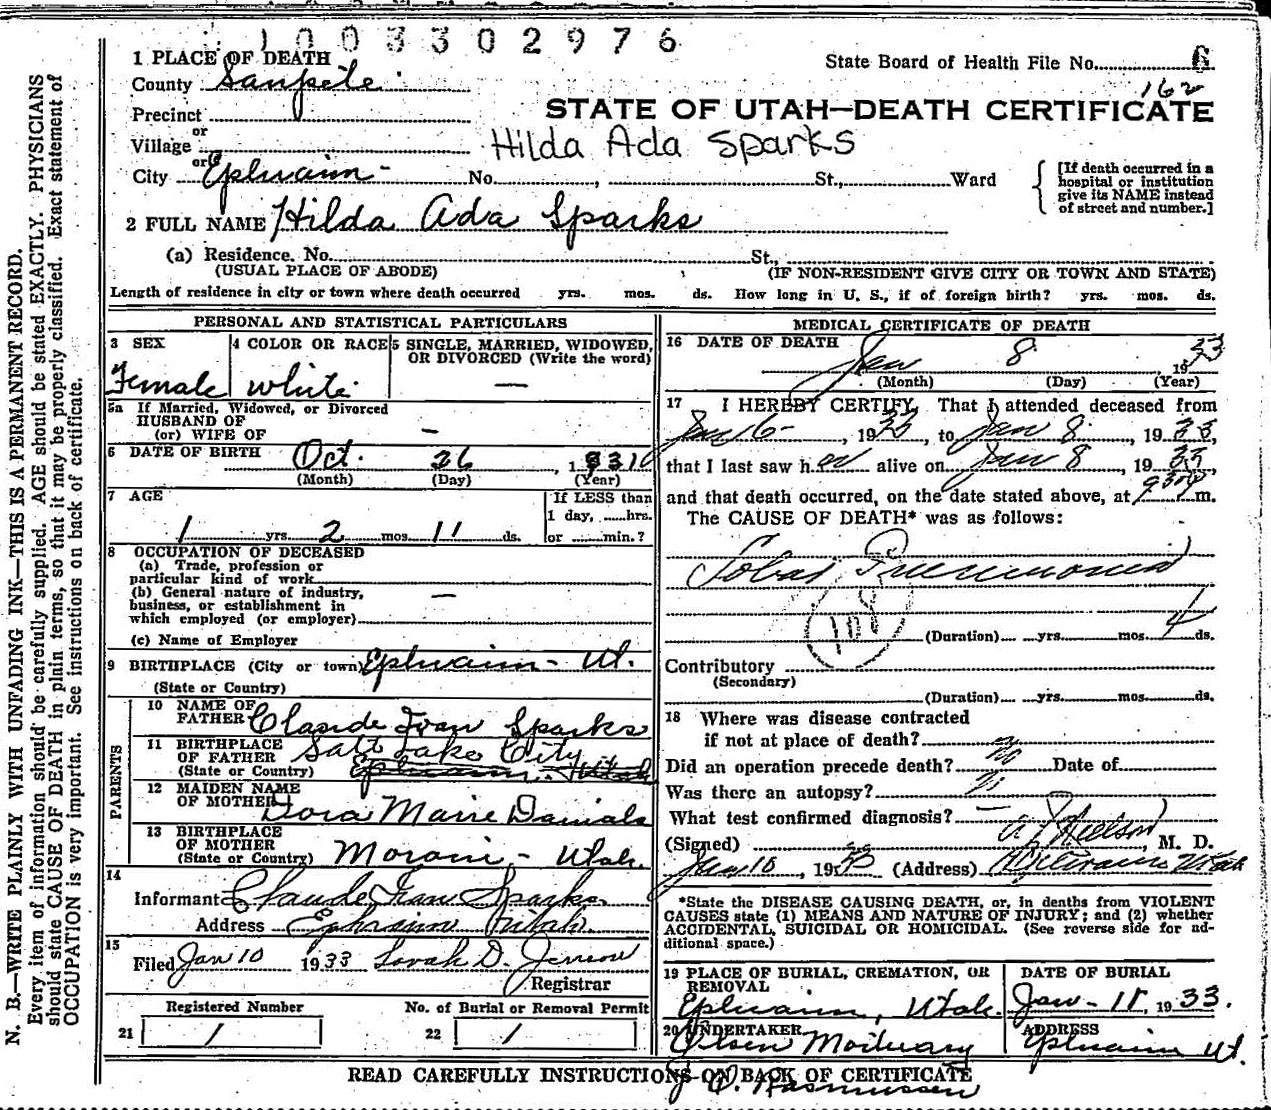 1003302976
1 PLACE OF DEATH
State Board of Health File No. 6
162
County Sanpete
STATE OF UTAH—DEATH CERTIFICATE
Precinct
or
Village
Hilda Ada Sparks
or
City Ephraim - No. , St., Ward
[If death occurred in a
hospital or institution
give its NAME instead
of street and number.]
2 FULL NAME Hilda Ada Sparks
(a) Residence. No. St.,
(USUAL PLACE OF ABODE) (IF NON-RESIDENT GIVE CITY OR TOWN AND STATE)
Length of residence in city or town where death occurred yrs. mos. ds. How long in U. S., if of foreign birth? yrs. mos. ds.
PERSONAL AND STATISTICAL PARTICULARS
3 SEX
Female
4 COLOR OR RACE
white
5 SINGLE, MARRIED, WIDOWED,
OR DIVORCED (Write the word)
—
5a If Married, Widowed, or Divorced
HUSBAND OF
(or) WIFE OF —
6 DATE OF BIRTH Oct. 26, 1931
(Month) (Day) (Year)
7 AGE
1 yrs. 2 mos. 11 ds.
If LESS than
1 day, hrs.
or min.?
8 OCCUPATION OF DECEASED
(a) Trade, profession or
particular kind of work
(b) General nature of industry,
business, or establishment in
which employed (or employer) —
(c) Name of Employer
9 BIRTHPLACE (City or town) Ephraim - Ut.
(State or Country)
PARENTS
10 NAME OF
FATHER Claude Ivan Sparks
11 BIRTHPLACE
OF FATHER
(State or Country) Salt Lake City
Ephraim, Utah
12 MAIDEN NAME
OF MOTHER Dora Marie Daniels
13 BIRTHPLACE
OF MOTHER
(State or Country) Moroni - Utah.
14
Informant Claude Ivan Sparks
Address Ephraim Utah.
15
Filed Jan 10 1933 Sarah D. Jenson
Registrar
Registered Number
21 1
No. of Burial or Removal Permit
22 1
MEDICAL CERTIFICATE OF DEATH
16 DATE OF DEATH
Jan 8, 1933
(Month) (Day) (Year)
17 I HEREBY CERTIFY, That I attended deceased from
Jan 6-, 1933, to Jan 8, 1933,
that I last saw her alive on Jan 8, 1933,
and that death occurred, on the date stated above, at 930P m.
The CAUSE OF DEATH* was as follows:
Lobar Pneumonia
108
(Duration) yrs. mos. 4 ds.
Contributory
(Secondary)
(Duration) yrs. mos. ds.
18 Where was disease contracted
if not at place of death?
Did an operation precede death? no Date of
Was there an autopsy? no
What test confirmed diagnosis? —
(Signed) Nielson, M. D.
Jan 10, 1933 (Address) Ephraim Utah
*State the DISEASE CAUSING DEATH, or, in deaths from VIOLENT
CAUSES state (1) MEANS AND NATURE OF INJURY; and (2) whether
ACCIDENTAL, SUICIDAL OR HOMICIDAL. (See reverse side for ad-
ditional space.)
19 PLACE OF BURIAL, CREMATION, OR
REMOVAL
Ephraim, Utah.
DATE OF BURIAL
Jan - 11, 1933.
20 UNDERTAKER
Olsen Mortuary
ADDRESS
Ephraim Ut.
READ CAREFULLY INSTRUCTIONS ON BACK OF CERTIFICATE
Rasmussen
N. B.—WRITE PLAINLY WITH UNFADING INK—THIS IS A PERMANENT RECORD.
Every item of information should be carefully supplied. AGE should be stated EXACTLY. PHYSICIANS
should state CAUSE OF DEATH in plain terms, so that it may be properly classified. Exact statement of
OCCUPATION is very important. See instructions on back of certificate.